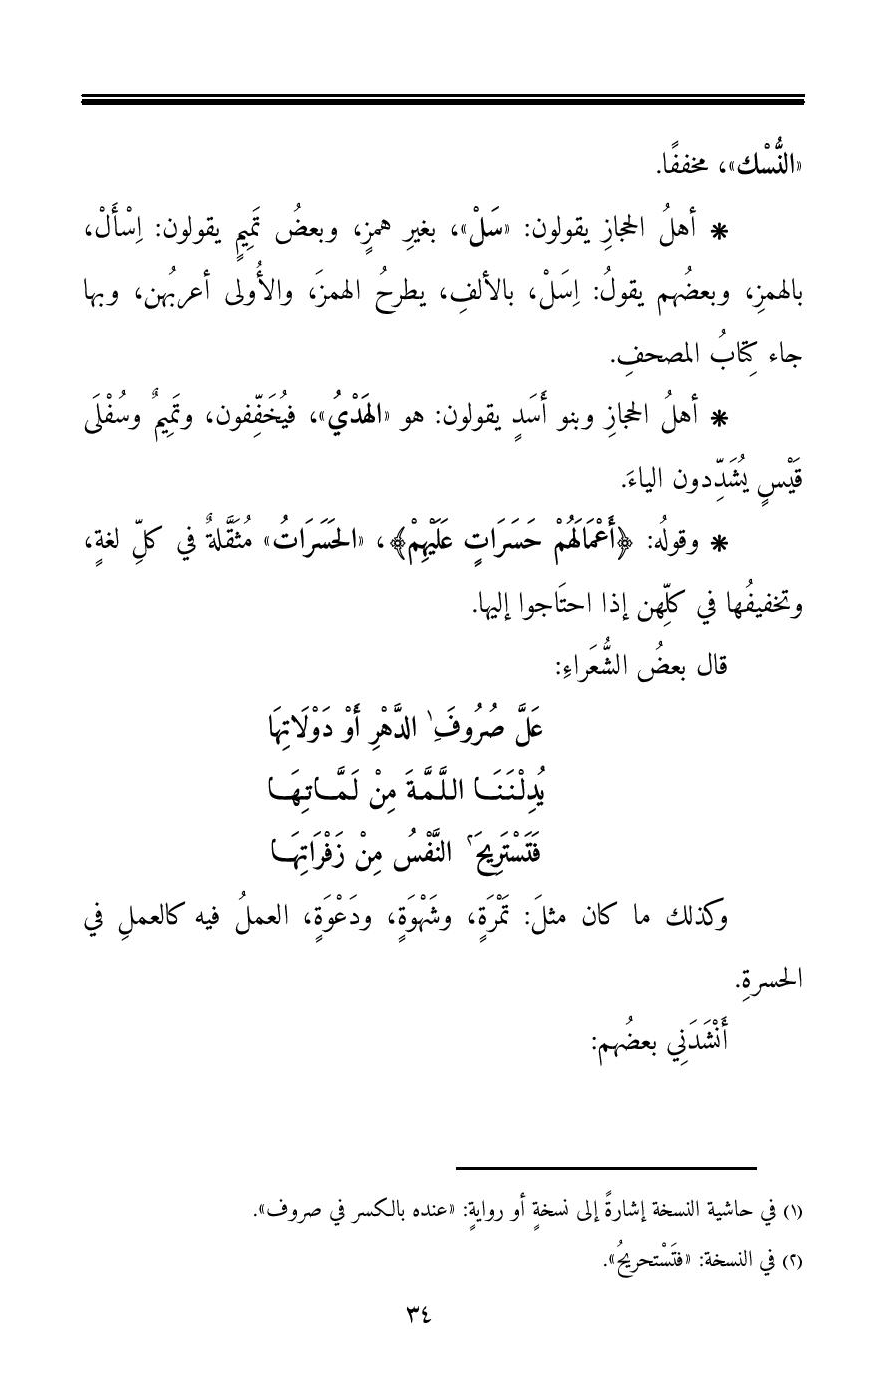 «النُّسْك»، مخففًا.
* أهلُ الحجازِ يقولون: «سَلْ»، بغيرِ همزٍ، وبعضُ تَمِيمٍ يقولون: اِسْأَلْ،
بالهمزِ، وبعضُهم يقولُ: اِسَلْ، بالألفِ، يطرحُ الهمزَ، والأُولى أعربُهن، وبها
جاء كِتابُ المصحفِ.
* أهلُ الحجازِ وبنو أَسَدٍ يقولون: هو «الهَدْيُ»، فيُخَفِّفون، وتَمِيمٌ وسُفْلَى
قَيْسٍ يُشَدِّدون الياءَ.
* وقولُه: ﴿أَعْمَالَهُمْ حَسَرَاتٍ عَلَيْهِمْ﴾، «الحَسَرَاتُ» مُثَقَّلةٌ في كلِّ لغةٍ،
وتخفيفُها في كلِّهن إذا احتَاجوا إليها.
قال بعضُ الشُّعَراءِ:
عَلَّ صُرُوفَِ١ الدَّهْرِ أَوْ دَوْلَاتِهَا
يُدِلْنَنَا اللَّمَّةَ مِنْ لَمَّاتِهَا
فَتَسْتَرِيحَ٢ النَّفْسُ مِنْ زَفْرَاتِهَا
وكذلك ما كان مثلَ: تَمْرَةٍ، وشَهْوَةٍ، ودَعْوَةٍ، العملُ فيه كالعملِ في
الحسرةِ.
أَنْشَدَنِي بعضُهم:
(١) في حاشية النسخة إشارةً إلى نسخةٍ أو روايةٍ: «عنده بالكسر في صروف».
(٢) في النسخة: «فتَسْتحريحُ».
٣٤